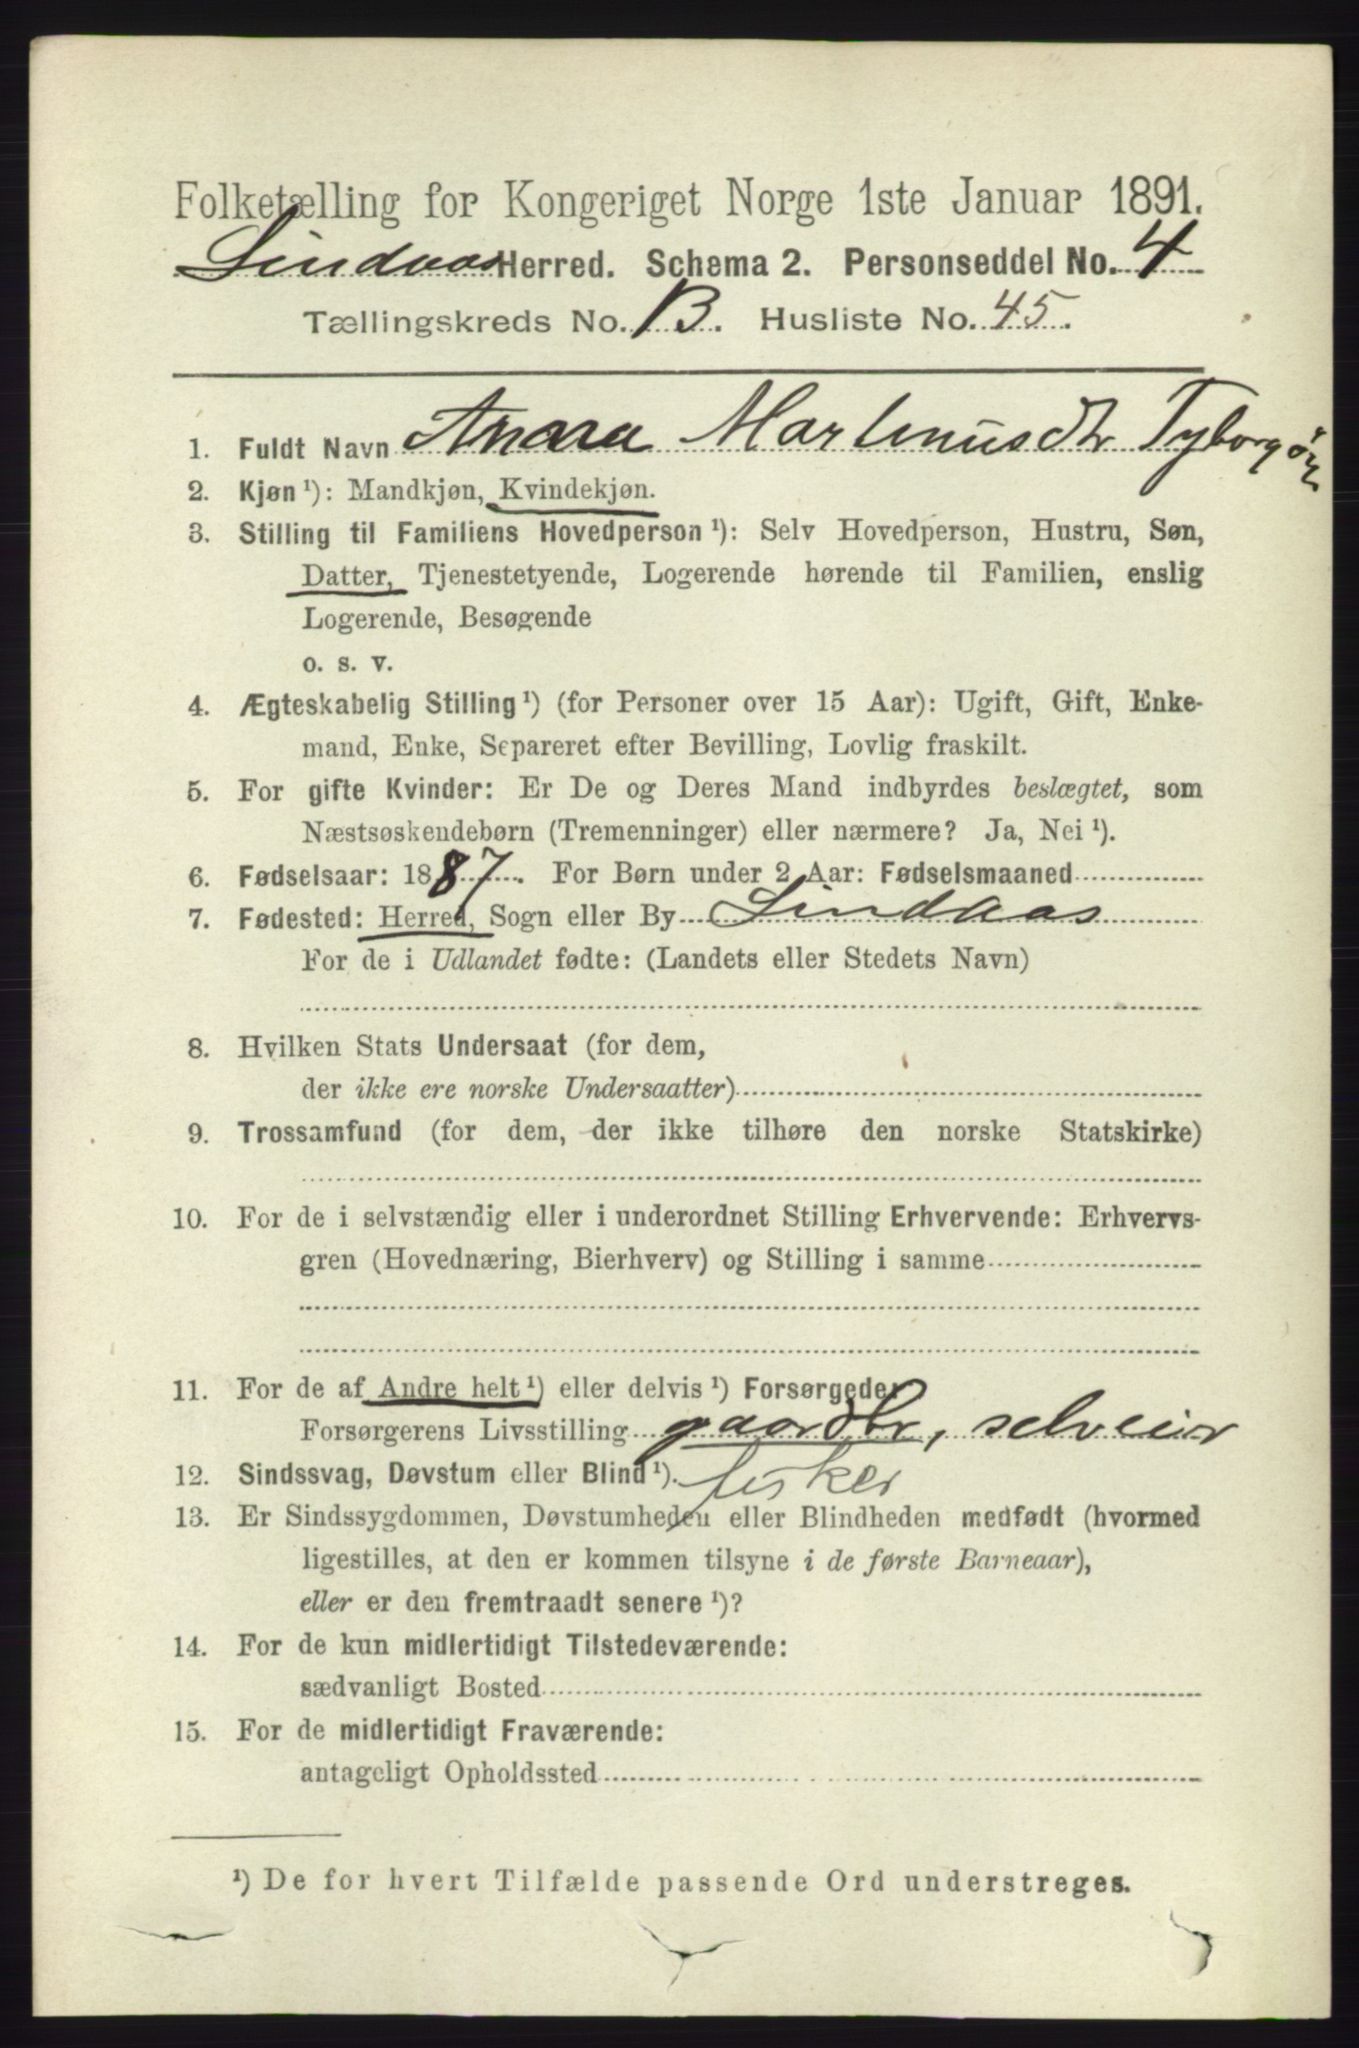 Folketælling for Kongeriget Norge 1ste Januar 1891.
Lindaas Herred. Schema 2. Personseddel No. 4
Tællingskreds No. 13. Husliste No. 45.
1. Fuldt Navn Martinusdtr Tyborgöy
2. Kjøn ¹): Mandkjøn, Kvindekjøn.
3. Stilling til Familiens Hovedperson ¹): Selv Hovedperson, Hustru, Søn,
Datter, Tjenestetyende, Logerende hørende til Familien, enslig
Logerende, Besøgende
o. s. v.
4. Ægteskabelig Stilling ¹) (for Personer over 15 Aar): Ugift, Gift, Enke-
mand, Enke, Separeret efter Bevilling, Lovlig fraskilt.
5. For gifte Kvinder: Er De og Deres Mand indbyrdes beslægtet, som
Næstsøskendebørn (Tremenninger) eller nærmere? Ja, Nei ¹).
6. Fødselsaar: 1887. For Børn under 2 Aar: Fødselsmaaned
7. Fødested: Herred, Sogn eller By Lindaas
For de i Udlandet fødte: (Landets eller Stedets Navn)
8. Hvilken Stats Undersaat (for dem,
der ikke ere norske Undersaatter)
9. Trossamfund (for dem, der ikke tilhøre den norske Statskirke)
10. For de i selvstændig eller i underordnet Stilling Erhvervende: Erhvervs-
gren (Hovednæring, Bierhverv) og Stilling i samme
11. For de af Andre helt ¹) eller delvis ¹) Forsørgede:
Forsørgerens Livsstilling gaardbr, selveier
12. Sindssvag, Døvstum eller Blind ¹). fisker
13. Er Sindssygdommen, Døvstumheden eller Blindheden medfødt (hvormed
ligestilles, at den er kommen tilsyne i de første Barneaar),
eller er den fremtraadt senere ¹)?
14. For de kun midlertidigt Tilstedeværende:
sædvanligt Bosted
15. For de midlertidigt Fraværende:
antageligt Opholdssted
¹) De for hvert Tilfælde passende Ord understreges.